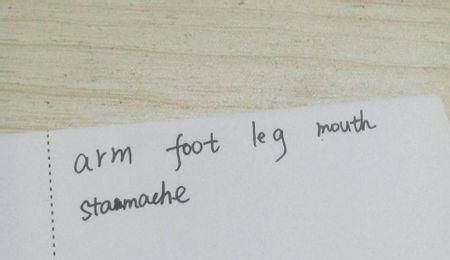 arm foot leg mouth
stammache